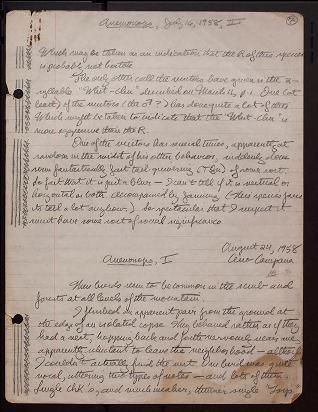 Anemonops, July 16, 1958, II
Which may be taken as an indication that the R of this species
is probably not hostile.
The only other call the visitors have given is the 2-
syllable "Whit-chu" described on March 14, p. 1. One (at
least) of the visitors (the ♂?) has done quite a lot of this
Which might be taken to indicate that the "Whit-chu" is
more aggressive than the R.
One of the visitors has several times, apparently at
random in the midst of his other behavior, suddenly done
some fantastically fast tail-quivering of some sort.
So fast that it is just a blur — I can't tell if it is vertical or
horizontal or both accompanied by fanning (this species fans
its tail a lot anyhow). So spectacular that I suspect it
must have some sort of social significance.
August 24, 1958
Cerro Campana
Anemonops, I
These birds seem to be common in the scrub and
forests at all levels of the mountain.
I flushed an apparent pair from the ground at
the edge of an isolated copse. They behaved rather as if they
had a nest, hopping back and forth nervously near me,
apparently reluctant to leave the neighborhood — although
I couldn't actually find the nest. One bird was quite
vocal, uttering two types of notes — and lots of them.
Single Chk's, and much weaker, thinner single